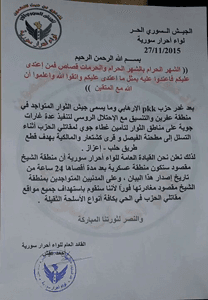 الجيش السوري الحر
لواء أحرار سورية
27/11/2015
بسم الله الرحمن الرحيم
( الشهر الحرام بالشهر الحرام والحرمات قصاص فمن اعتدى
عليكم فاعتدوا عليه بمثل ما اعتدى عليكم واتقوا الله واعلموا أن
الله مع المتقين )
بعد غدر حزب pkk الإرهابي وما يسمى جيش الثوار المتواجد في
منطقة عفرين والتنسيق مع الاحتلال الروسي لتنفيذ عدة غارات
جوية على مناطق الثوار لتأمين غطاء جوي لمقاتلي الحزب أثناء
التسلل إلى مطحنة الفيصل و قرى كشتعار والمالكية بهدف قطع
طريق حلب - إعزاز .
لذلك نعلن نحن القيادة العامة للواء أحرار سورية أن منطقة الشيخ
مقصود ستكون منطقة عسكرية بعد مدة أقصاها 24 ساعة من
تاريخ إصدار هذا البيان ، وعلى المدنيين المتواجدين بمنطقة
الشيخ مقصود مغادرتها فوراً لأننا سنقوم باستهداف جميع مواقع
مقاتلي الحزب في الحي بكافة أنواع الأسلحة الثقيلة .
والنصر لثورتنا المباركة
القائد العام للواء أحرار سورية